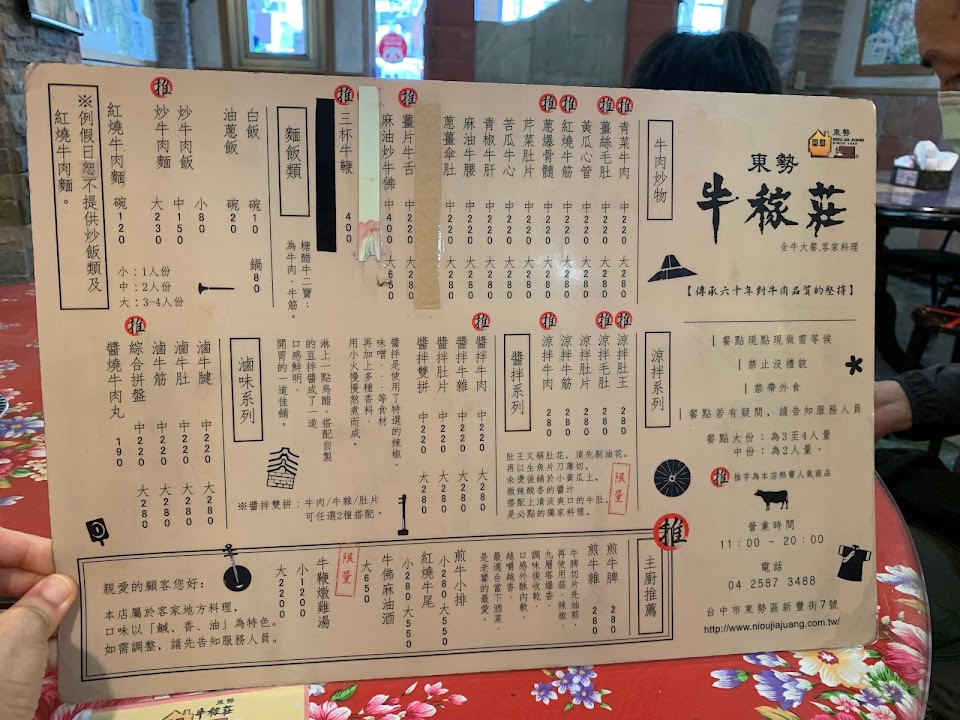 東勢
NIOU JIA JUANG
東勢
牛稼莊
全牛大餐.客家料理
【傳承六十年對牛肉品質的堅持】
餐點現點現做需等候
禁止沒禮貌
禁帶外食
餐點若有疑問，請告知服務人員
餐點大份：為3至4人量
中份：為2人量。
推 推字為本店熱賣人氣商品
營業時間
11:00 - 20:00
電話
04 2587 3488
台中市東勢區新豐街7號
http://www.nioujiajuang.com.tw/
牛肉炒物
推 青菜牛肉 中220 大280
推 薑絲毛肚 中220 大280
黃瓜心管 中220 大280
推 紅燒牛筋 中220 大280
推 蔥爆骨髓 中220 大280
芹菜肚片 中220 大280
苦瓜牛心 中220 大280
青椒牛肝 中220 大280
麻油牛腰 中220 大280
蔥薑傘肚 中220 大280
推 薑片牛舌 中220 大650
麻油炒牛佛 中400 大650
推 三杯牛鞭 400
糖醋牛二寶：
為牛肉、牛筋。
麵飯類
白飯 碗10 鍋80
油蔥飯 碗20
炒牛肉飯 小80
推 炒牛肉麵 中150
大230
紅燒牛肉麵 碗120
小：1人份
中：2人份
大：3-4人份
※例假日恕不提供炒飯類及
紅燒牛肉麵。
涼拌系列
推 涼拌肚王 280
推 涼拌毛肚 280
涼拌肚片 280
涼拌牛筋 280
推 涼拌牛肉 280
肚王又稱肚花，須先剔油花，
再以生魚片刀薄切，
汆燙後鋪於小黃瓜上，
微辣酸香的醬汁
搭配上清淡爽口的牛肚，
是必點的獨家料理。
限量
醬拌系列
推 醬拌牛肉 中220 大280
醬拌牛雜 中220 大280
醬拌肚片 中220 大280
醬拌雙拼 中220 大280
醬拌是使用了特選的辣椒、
味噌...等食材
再加上多種香料，
用小火慢慢熬煮而成。
淋上一點烏醋、搭配自製
的豆拌醬成了一道
口感鮮明、
開胃的一道佳餚。
※醬拌雙拼：牛肉/牛雜/肚片
可任選2種搭配。
滷味系列
滷牛腱 中220 大280
滷牛肚 中220 大280
滷牛筋 中220 大280
推 綜合拼盤 中220 大280
醬燒牛肉丸 190
推
主廚推薦
煎牛脾 280
煎牛雜 280
牛脾切片先油煎，
再使用蒜、辣椒、
九層塔爆香，
調味後收乾，
口感外酥內軟，
越嚼越香，
最適合當下酒菜，
是老饕的最愛。
煎牛小排 小280 大550
紅燒牛尾 小280 大550
牛佛麻油酒 大650
限量
牛鞭燉雞湯 小1200
大2200
親愛的顧客您好：
本店屬於客家地方料理，
口味以「鹹、香、油」為特色。
如需調整，請先告知服務人員。
東勢
牛稼莊